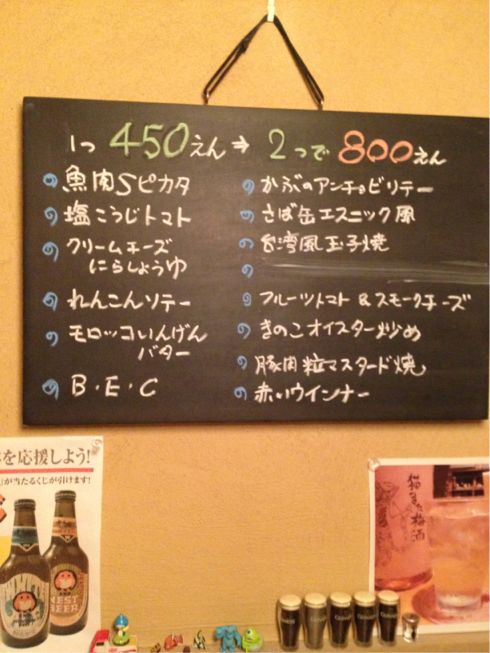 1つ 450えん⇒ 2つで 800えん
魚肉Sピカタ
塩こうじトマト
クリームチーズ
にらしょうゆ
れんこんソテー
モロッコいんげん
バター
B・E・C
かぶのアンチョビソテー
さば缶エスニック風
台湾風玉子焼
フルーツトマト&スモークチーズ
きのこオイスター炒め
豚肉粒マスタード焼
赤いウインナー
を応援しよう!
が当たるくじが引けます!
NEST
BEER
猫また梅酒